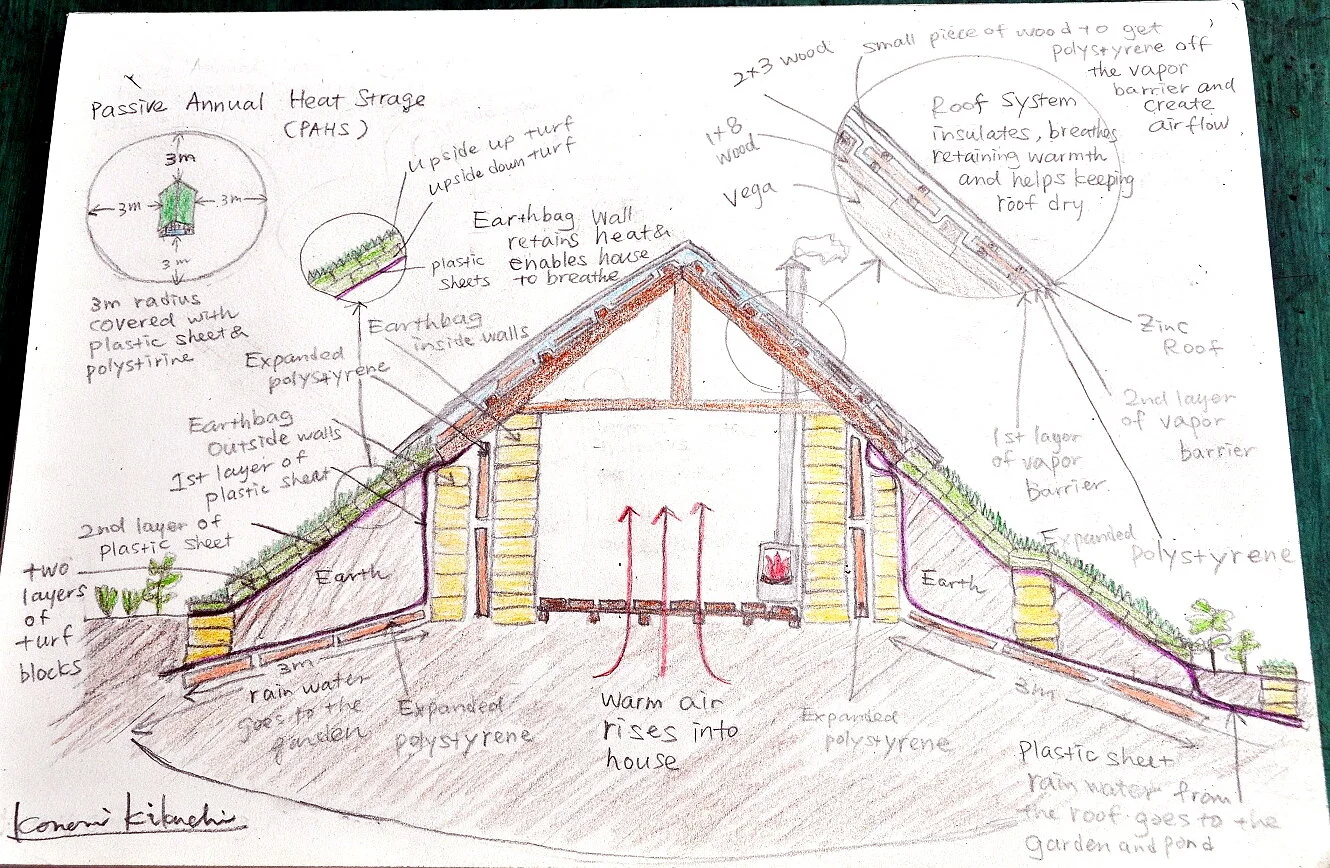 Passive Annual Heat Strage
(PAHS)
3m
3m
3m
3m
3m radius
covered with
plastic sheet &
polystirine
upside up turf
upside down turf
plastic
sheets
Earthbag Wall
retains heat &
enables house
to breathe
2+3 wood
1+8
wood
Vega
small piece of wood to get
polystyrene off
the vapor
barrier and
create
airflow
Roof System
insulates, breathes
retaining warmth
and helps keeping
roof dry
Zinc
Roof
2nd layer
of vapor
barrier
1st layer
of vapor
Barrier.
Expanded
polystyrene
Earthbag
inside walls
Expanded
polystyrene
Earthbag
outside walls
1st layer of
plastic sheet
2nd layer of
plastic sheet
two
layers
of
turf
blocks
Earth
Earth
3m
rain water
goes to the
garden
Expanded
polystyrene
Warm air
rises into
house
Expanded
polystyrene
3m
Plastic sheet
rain water from
the roof goes to the
garden and pond
Konomi Kikuchi